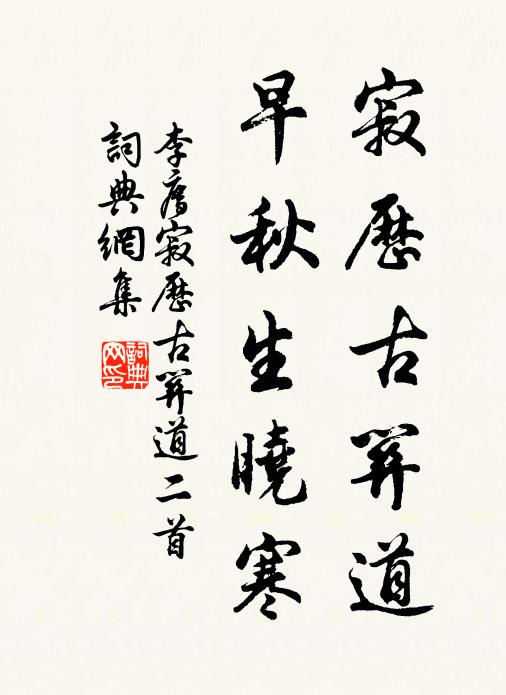 寂歷古道
早秋生曉寒
李廌寂歷古道二首
詞典網集
詞典网印